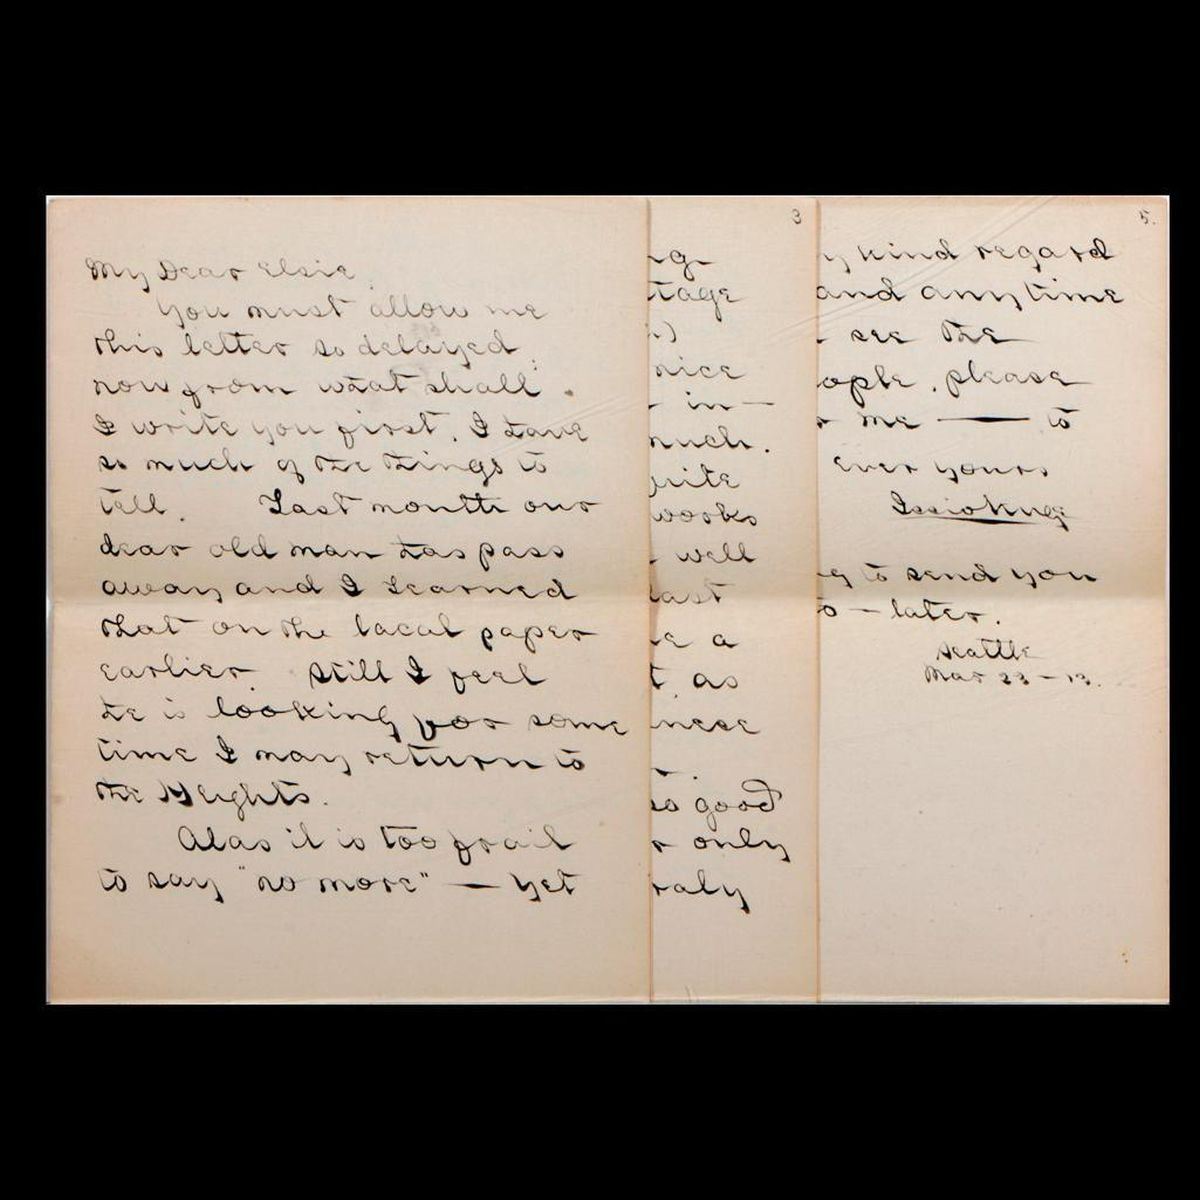 My Dear Elsie,
You must allow me
this letter so delayed,
now from what shall
I write you first. I have
so much of the things to
tell. Last month our
dear old man has pass
away and I learned
that on the local paper
earlier. Still I feel
he is looking for some
time I may return to
the Heights.
Alas it is too frail
to say "no more" — yet
3
tage
nice
in—
much.
works
well
last
a
as
so good
only
5.
kind regard
and any time
see the
please
me — to
ever yours
to send you
— later.
Seattle
Mar 23 – 13.